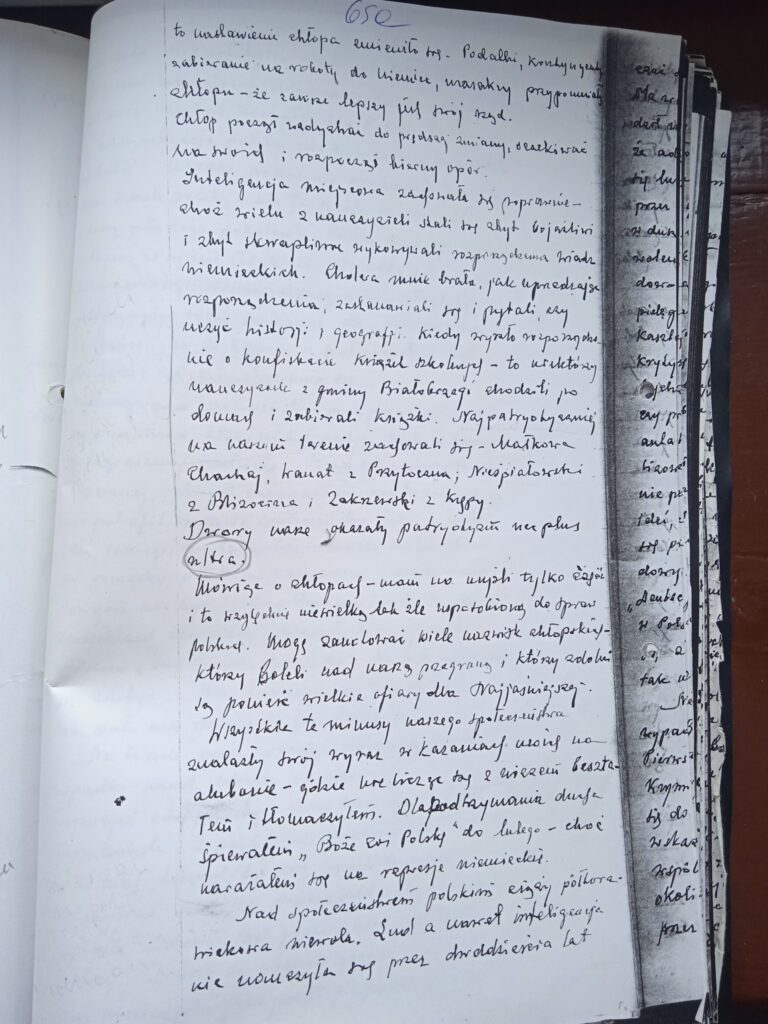 650
to nastawienie chłopa zmieniło się. Podatki, kontyngenty
zabieranie na roboty do Niemiec, masakry przypomniały
chłopu – że zawsze lepszy jest swój rząd.
Chłop począł wzdychać do prędszej zmiany, oczekiwać
na swoich i rozpoczął bierny opór.
Inteligencja miejscowa zachowała się poprawnie –
choć wielu z nauczycieli stali się zbyt bojaźliwi
i zbyt skwapliwie wykonywali rozporządzenia władz
niemieckich. Cholera mnie brała, jak uprzedzając
rozporządzenia, zastanawiali się i pytali, czy
uczyć historji i geografji. Kiedy wyszło rozporządze-
nie o konfiskacie książek szkolnych – to niektórzy
nauczyciele z gminy Białobrzegi chodzili po
domach i zabierali książki. Najpatryotyczniej
na naszym terenie zachowali się – Małkowa
Chachaj, Wanat z Przytoczna; Nieśpiałowski
z Blizocina i Zakrzewski z Kępy.
Dwory nasze okazały patryotyzm nec plus
ultra.
Mówiąc o chłopach – mam na myśli tylko część
i to względnie niewielką tak źle usposobioną do spraw
polskiej. Mogę zanotować wiele nazwisk chłopskich –
którzy boleli nad naszą przegraną i którzy zdolni
są ponieść wielkie ofiary dla Najjaśniejszej.
Wszystkie te minusy naszego społeczeństwa
znalazły swój wyraz w kazaniach moich na
ambonie – gdzie nie licząc się z niczem beszta-
łem i tłomaczyłem. Dla podtrzymania ducha
śpiewałem „Boże coś Polskę" do lutego – choć
narażałem się na represje niemieckie.
Nad społeczeństwem polskim ciąży półtora-
wiekowa niewola. Lud a nawet inteligencja
nie nauczyła się przez dwadzieścia lat